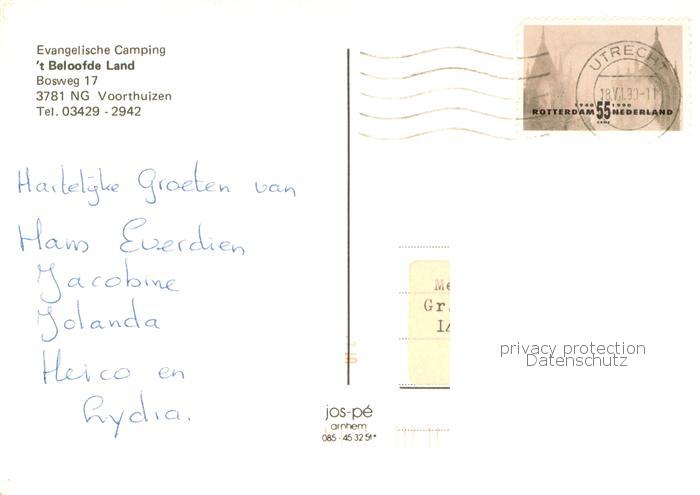 Evangelische Camping
't Beloofde Land
Bosweg 17
3781 NG Voorthuizen
Tel. 03429 - 2942
UTRECHT
18.VII.90-11
1940 1990
ROTTERDAM 55 NEDERLAND
CENT
Hartelijke Groeten van
Hans Everdien
Jacobine
Jolanda
Heico en
Lydia.
Me
Gr.
privacy protection
Datenschutz
jos-pé
arnhem
085 - 45 32 51*